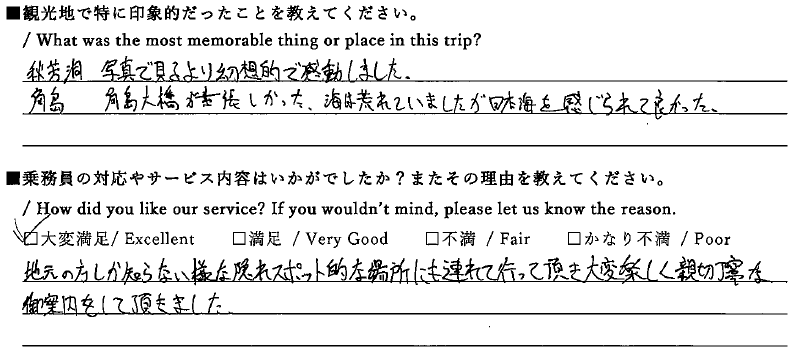 ■観光地で特に印象的だったことを教えてください。
/ What was the most memorable thing or place in this trip?
秋芳洞 写真で見るより幻想的で感動しました。
角島 角島大橋が素晴しかった、海は荒れていましたが日本海を感じられて良かった。
■乗務員の対応やサービス内容はいかがでしたか？またその理由を教えてください。
/ How did you like our service? If you wouldn't mind, please let us know the reason.
□大変満足/ Excellent □満足 / Very Good □不満 / Fair □かなり不満 / Poor
地元の方しか知らない様な隠れスポット的な場所にも連れて行って頂き大変楽しく親切丁寧な
御案内をして頂きました。